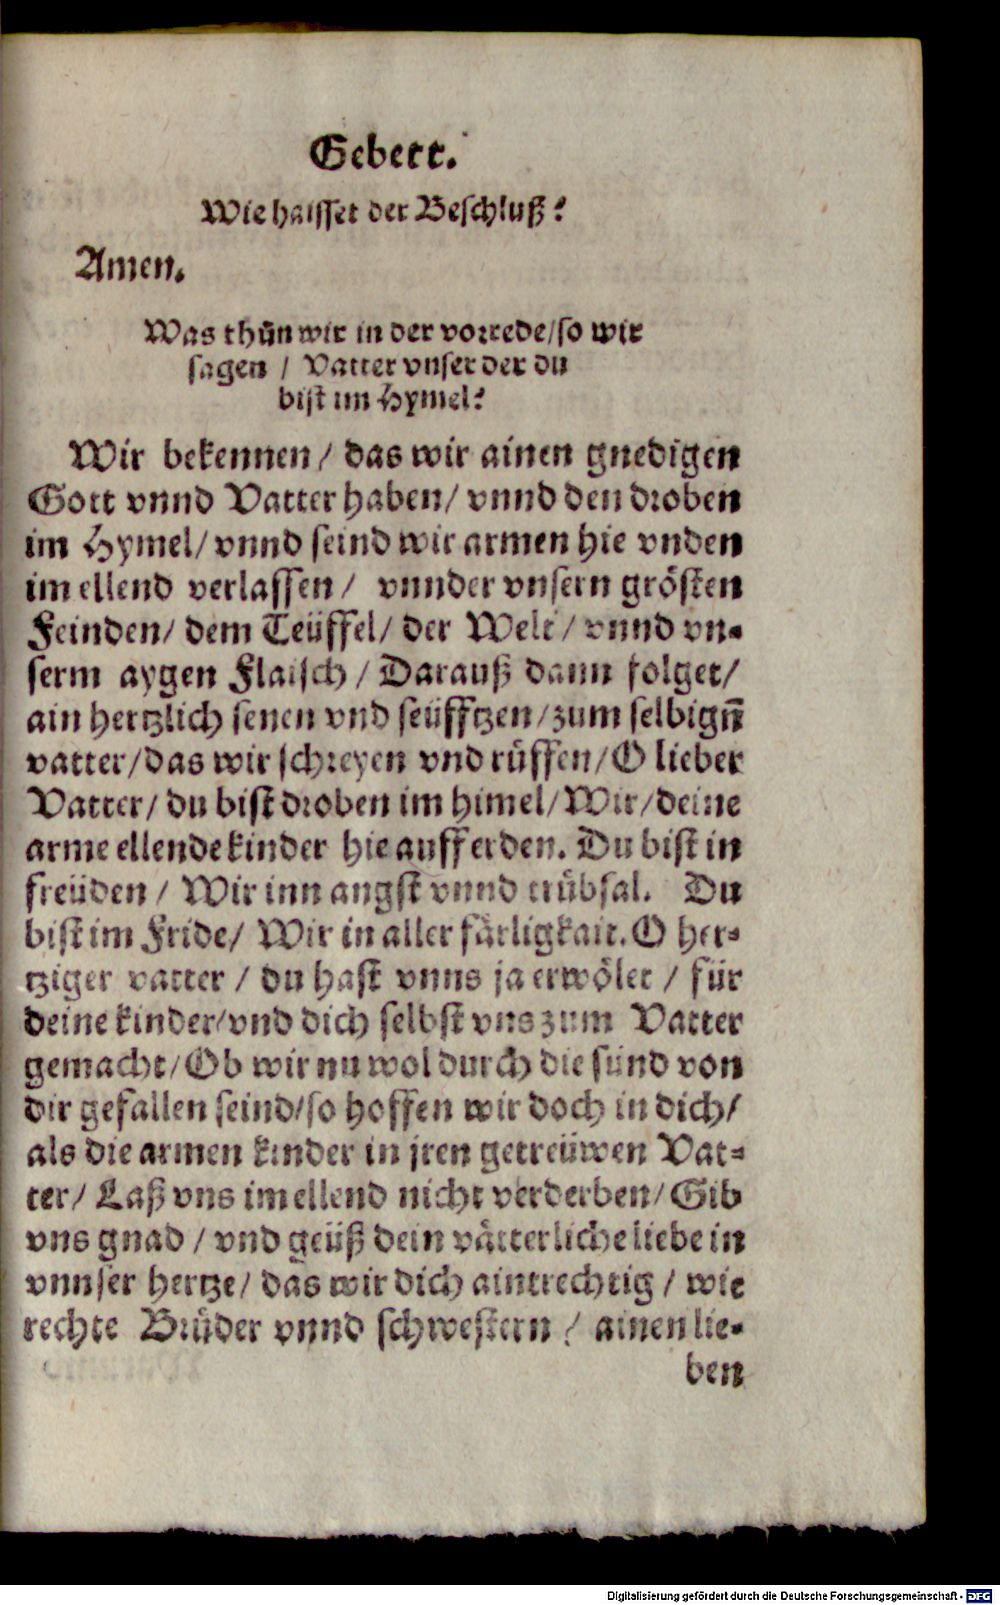 Gebett.
Wie haisset der Beschluß?
Amen.
Was thůn wir in der vorrede/so wir
sagen / Vatter vnser der du
bist im Hymel?
Wir bekennen/ das wir ainen gnedigen
Gott vnnd Vatter haben/ vnnd den droben
im Hymel/ vnnd seind wir armen hie vnden
im ellend verlassen/ vnnder vnsern grösten
Feinden/ dem Teüffel/ der Welt/ vnnd vn-
serm aygen Flaisch / Darauß dann folget/
ain hertzlich senen vnd seüfftzen/zum selbign̄
vatter/das wir schreyen vnd růffen/O lieber
Vatter/ du bist droben im himel/Wir/deine
arme ellende kinder hie auff erden. Du bist in
freüden / Wir inn angst vnnd trůbsal. Du
bist im Fride/ Wir in aller färligkait. O her-
tziger vatter / du hast vnns ja erwölet / für
deine kinder/vnd dich selbst vns zum Vatter
gemacht/Ob wir nu wol durch die sünd von
dir gefallen seind/so hoffen wir doch in dich/
als die armen kinder in jren getreüwen Vat-
ter/ Laß vns im ellend nicht verderben/ Gib
vns gnad / vnd geüß dein vätterliche liebe in
vnnser hertze/ das wir dich aintrechtig / wie
rechte Brůder vnnd schwestern / ainen lie-
ben
Digitalisierung gefördert durch die Deutsche Forschungsgemeinschaft - DFG